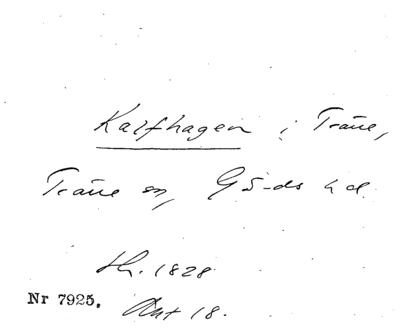 Kalfhagen i Träne,
Träne sn, Gärds hd
th. 1828
Nr 7925. Akt 18.